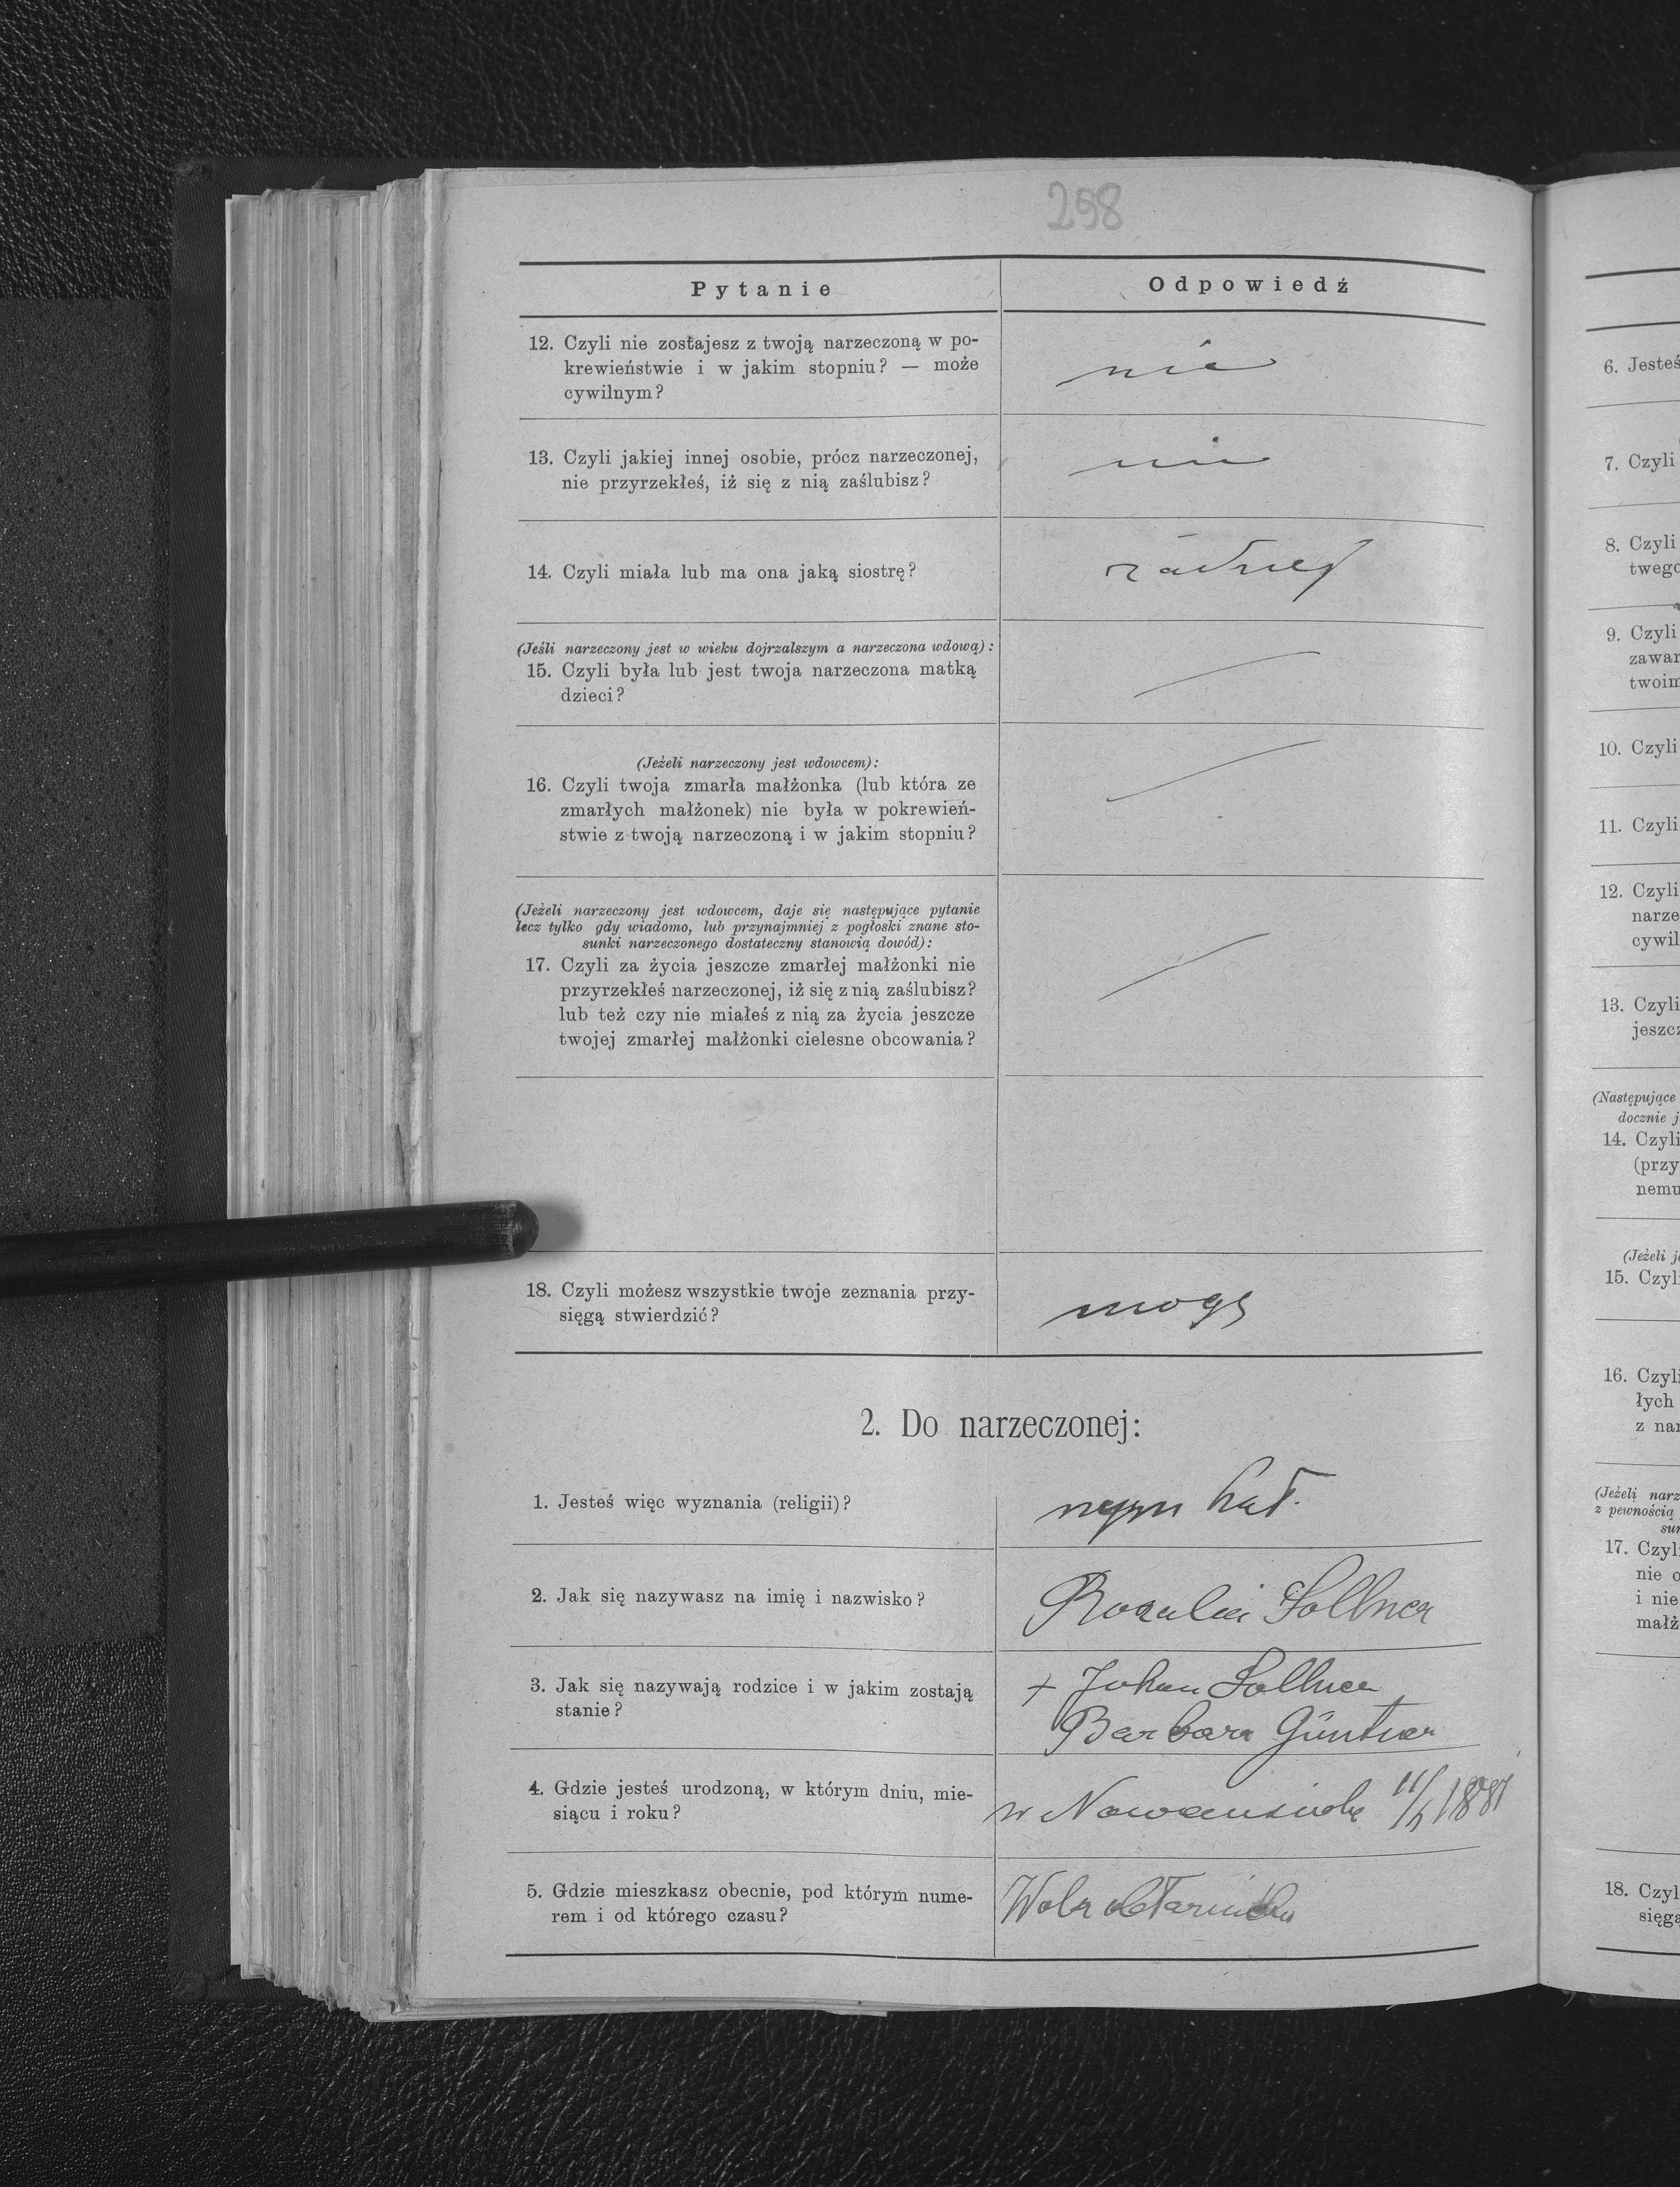 298
Pytanie
Odpowiedź
12. Czyli nie zostajesz z twoją narzeczoną w po-
krewieństwie i w jakim stopniu? — może
cywilnym?
nie
13. Czyli jakiej innej osobie, prócz narzeczonej,
nie przyrzekłeś, iż się z nią zaślubisz?
nie
14. Czyli miała lub ma ona jaką siostrę?
żadnej
(Jeśli narzeczony jest w wieku dojrzalszym a narzeczona wdową):
15. Czyli była lub jest twoja narzeczona matką
dzieci?
(Jeżeli narzeczony jest wdowcem):
16. Czyli twoja zmarła małżonka (lub która ze
zmarłych małżonek) nie była w pokrewień-
stwie z twoją narzeczoną i w jakim stopniu?
(Jeżeli narzeczony jest wdowcem, daje się następujące pytanie
lecz tylko gdy wiadomo, lub przynajmniej z pogłoski znane sto-
sunki narzeczonego dostateczny stanowią dowód):
17. Czyli za życia jeszcze zmarłej małżonki nie
przyrzekłeś narzeczonej, iż się z nią zaślubisz?
lub też czy nie miałeś z nią za życia jeszcze
twojej zmarłej małżonki cielesne obcowania?
18. Czyli możesz wszystkie twoje zeznania przy-
sięgą stwierdzić?
mogę
2. Do narzeczonej:
1. Jesteś więc wyznania (religii)?
rzym kat.
2. Jak się nazywasz na imię i nazwisko?
Rozalia Sollner
3. Jak się nazywają rodzice i w jakim zostają
stanie?
+ Johan Sollner
Barbara Güntner
4. Gdzie jesteś urodzoną, w którym dniu, mie-
siącu i roku?
w
5. Gdzie mieszkasz obecnie, pod którym nume-
rem i od którego czasu?
Wola
6. Jesteś
7. Czyli
8. Czyli
twego
9. Czyli
zawar
twoim
10. Czyli
11. Czyli
12. Czyli
narze
cywil
13. Czyli
jeszcz
(Następujące
docznie j
14. Czyli
(przy
nemu
(Jeżeli je
15. Czyli
16. Czyli
łych
z nar
(Jeżeli narz
z pewnością
sun
17. Czyli
nie o
i nie
małż
18. Czyl
sięgą